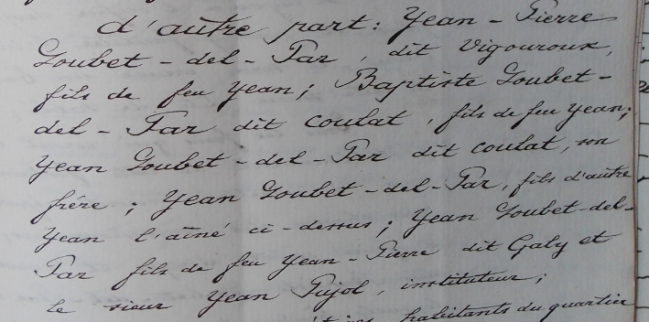 d'autre part: Jean-Pierre
Goubet-del-Tar, dit Vigouroux,
fils de feu Jean; Baptiste Goubet-
del-Tar dit coulat, fils de feu Jean;
Jean Goubet-del-Tar dit coulat, son
frère; Jean Goubet-del-Tar, fils d'autre
Jean l'aîné ci-dessus; Jean Goubet-del-
Tar fils de feu Jean-Pierre dit Galy et
le sieur Jean Pujol, instituteur;
habitants du quartier